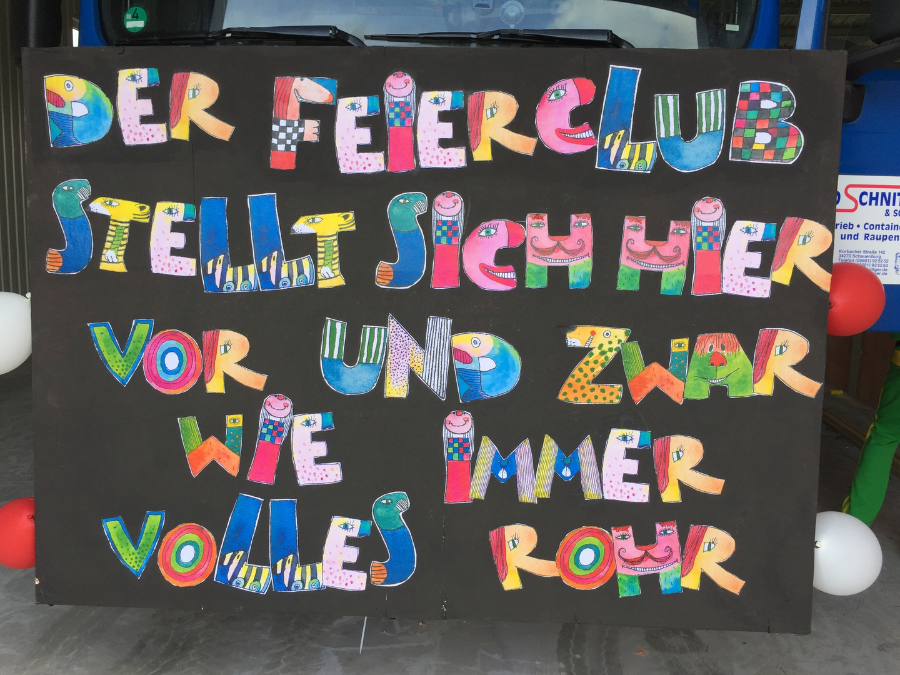 4
DER FEIERCLUB
STELLT SICH HIER
VOR UND ZWAR
WIE IMMER
VOLLES ROHR
SCHNIT
& SC
rieb • Containe
und Raupen